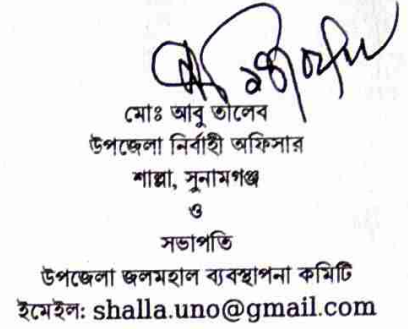 মোঃ আবু তালেব
উপজেলা নির্বাহী অফিসার
শাল্লা, সুনামগঞ্জ
ও
সভাপতি
উপজেলা জলমহাল ব্যবস্থাপনা কমিটি
ইমেইল: shalla.uno@gmail.com